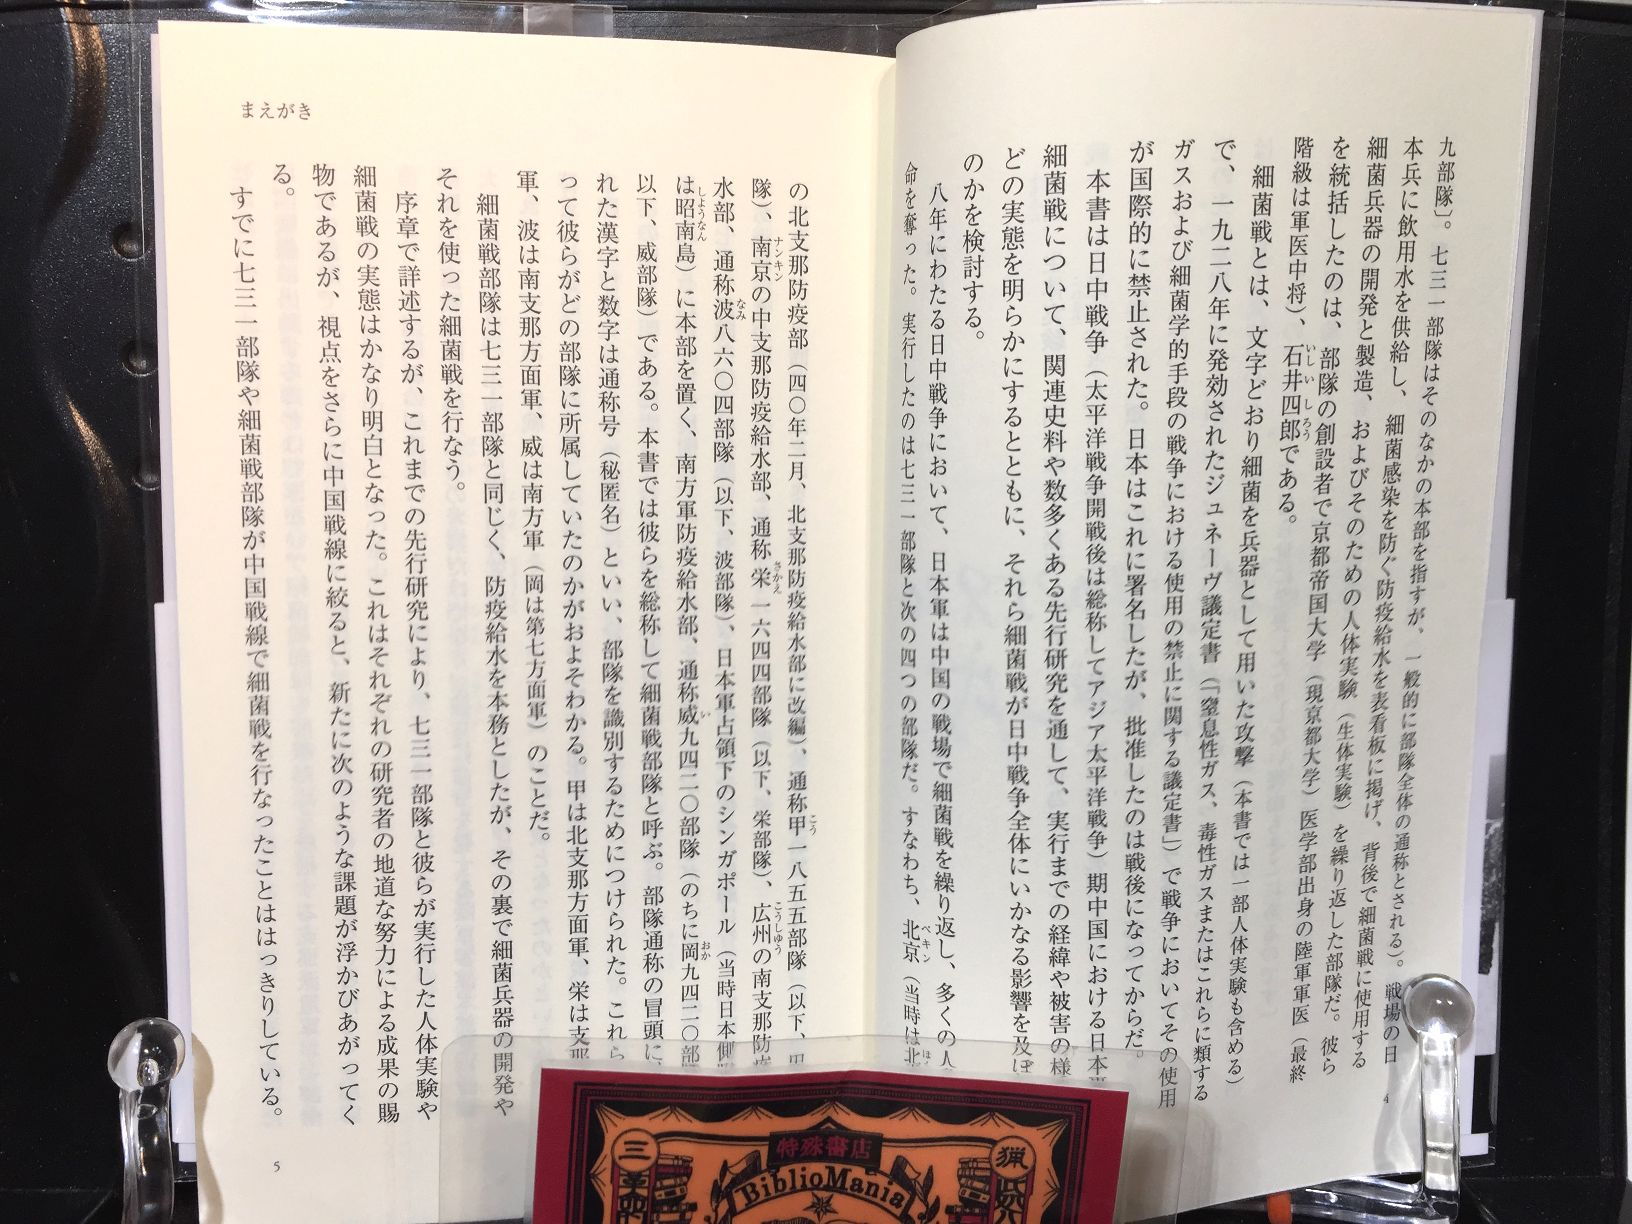 九部隊〕。七三一部隊はそのなかの本部を指すが、一般的に部隊全体の通称とされる)。戦場の日
本兵に飲用水を供給し、細菌感染を防ぐ防疫給水を表看板に掲げ、背後で細菌戦に使用する
細菌兵器の開発と製造、およびそのための人体実験(生体実験)を繰り返した部隊だ。彼ら
を統括したのは、部隊の創設者で京都帝国大学(現京都大学)医学部出身の陸軍軍医(最終
階級は軍医中将)、石井四郎である。
細菌戦とは、文字どおり細菌を兵器として用いた攻撃(本書では一部人体実験も含める)
で、一九二八年に発効されたジュネーヴ議定書(「窒息性ガス、毒性ガスまたはこれらに類する
ガスおよび細菌学的手段の戦争における使用の禁止に関する議定書」)で戦争においてその使用
が国際的に禁止された。日本はこれに署名したが、批准したのは戦後になってからだ。
本書は日中戦争(太平洋戦争開戦後は総称してアジア太平洋戦争)期中国における日本
細菌戦について、関連史料や数多くある先行研究を通して、実行までの経緯や被害の様
どの実態を明らかにするとともに、それら細菌戦が日中戦争全体にいかなる影響を及ぼ
のかを検討する。
八年にわたる日中戦争において、日本軍は中国の戦場で細菌戦を繰り返し、多くの人
命を奪った。実行したのは七三一部隊と次の四つの部隊だ。すなわち、北京(当時は北
4
まえがき
の北支那防疫部(四〇年二月、北支那防疫給水部に改編)、通称甲一八五五部隊(以下、甲
隊)、南京の中支那防疫給水部、通称栄一六四四部隊(以下、栄部隊)、広州の南支那防疫
水部、通称波八六〇四部隊(以下、波部隊)、日本軍占領下のシンガポール(当時日本側
は昭南島)に本部を置く、南方軍防疫給水部、通称威九四二〇部隊(のちに岡九四二〇部
以下、威部隊)である。本書では彼らを総称して細菌戦部隊と呼ぶ。部隊通称の冒頭に、
れた漢字と数字は通称号(秘匿名)といい、部隊を識別するためにつけられた。これら
って彼らがどの部隊に所属していたのかがおよそわかる。甲は北支那方面軍、栄は支那
軍、波は南支那方面軍、威は南方軍(岡は第七方面軍)のことだ。
細菌戦部隊は七三一部隊と同じく、防疫給水を本務としたが、その裏で細菌兵器の開発や
それを使った細菌戦を行なう。
序章で詳述するが、これまでの先行研究により、七三一部隊と彼らが実行した人体実験や
細菌戦の実態はかなり明白となった。これはそれぞれの研究者の地道な努力による成果の賜
物であるが、視点をさらに中国戦線に絞ると、新たに次のような課題が浮かびあがってく
る。
すでに七三一部隊や細菌戦部隊が中国戦線で細菌戦を行なったことははっきりしている。
5
特殊書店
BiblioMania
三
猟